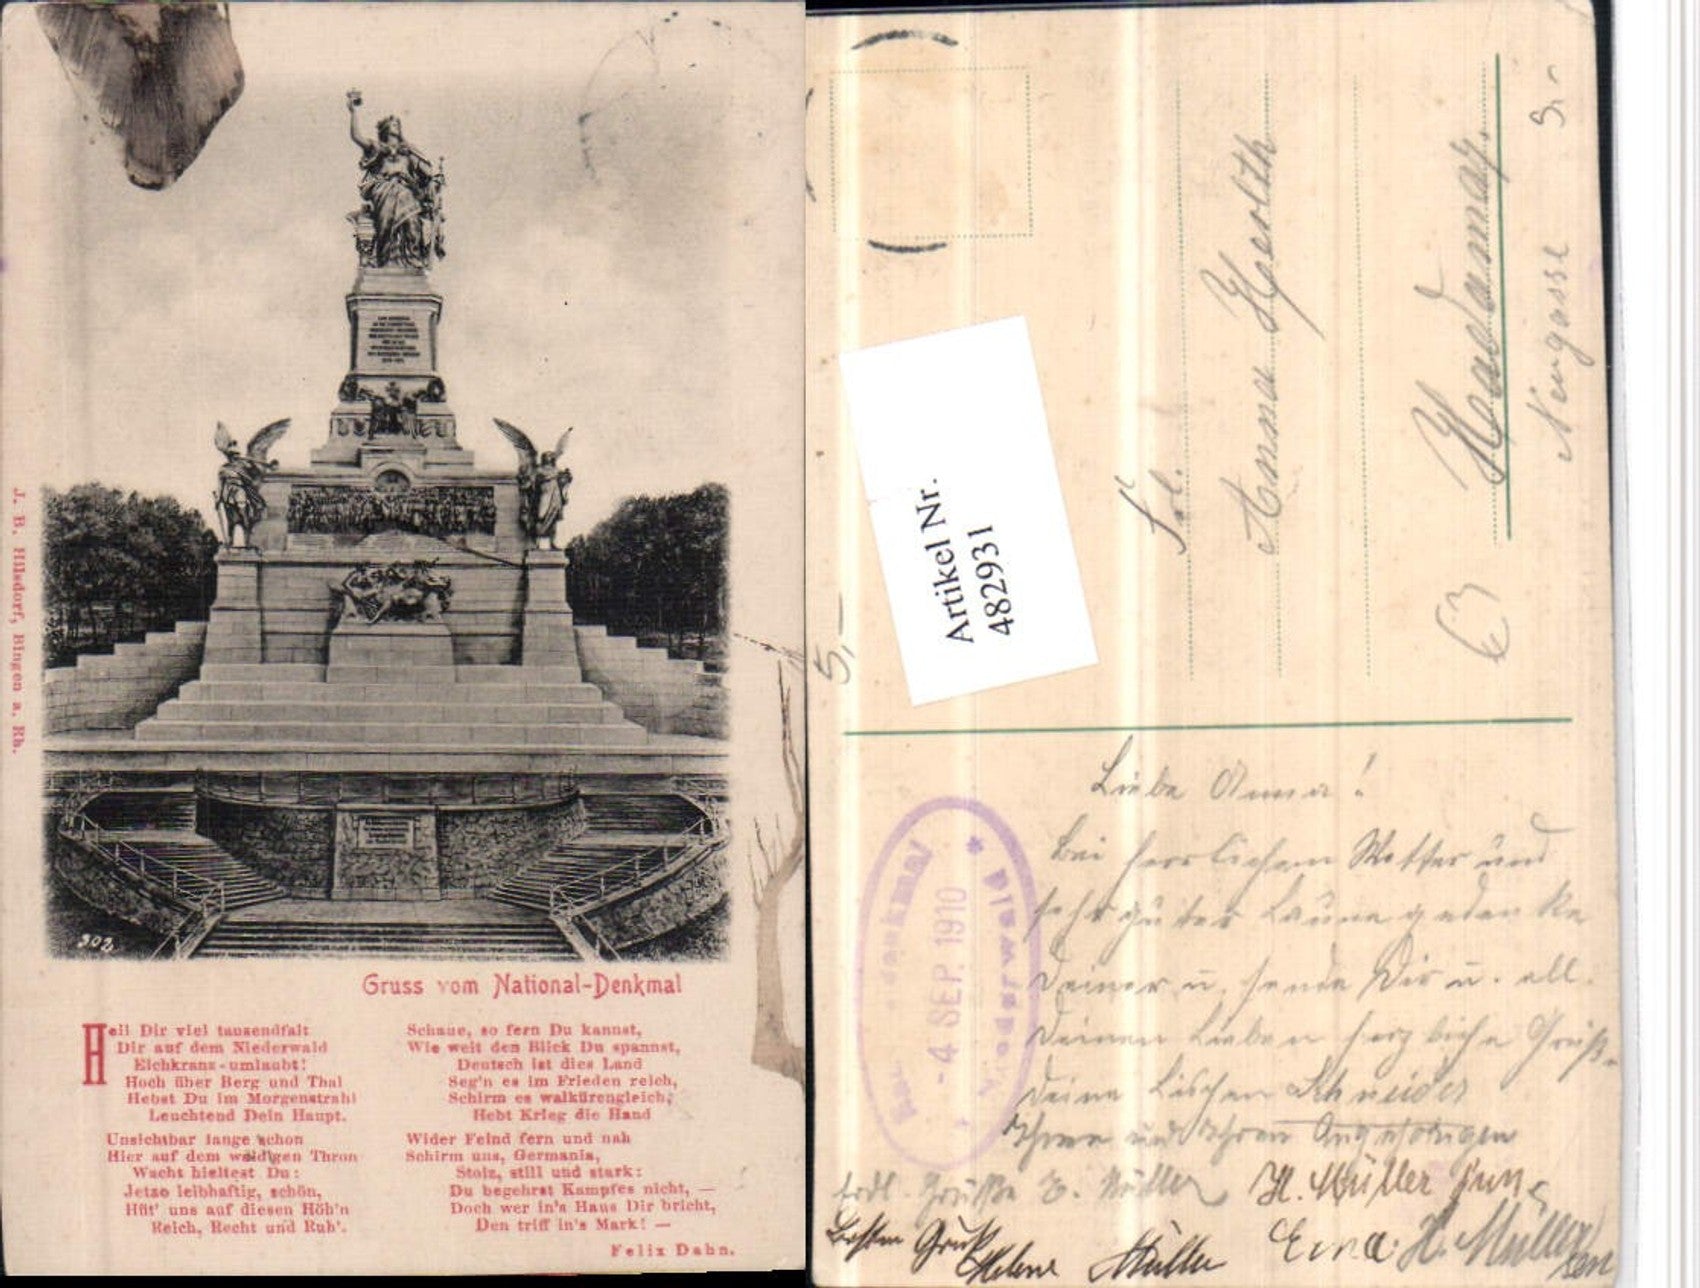 J. B. Hilsdorf, Bingen a. Rh.
302
Gruss vom National-Denkmal
Heil Dir viel tausendfalt
Dir auf dem Niederwald
Eichkranz-umlaubt!
Hoch über Berg und Thal
Hebst Du im Morgenstrahl
Leuchtend Dein Haupt.
Unsichtbar lange schon
Hier auf dem waldigen Thron
Wacht hieltest Du:
Jetzo leibhaftig, schön,
Hüt' uns auf diesen Höh'n
Reich, Recht und Ruh'.
Schaue, so fern Du kannst,
Wie weit den Blick Du spannst,
Deutsch ist dies Land
Seg'n es im Frieden reich,
Schirm es walkürengleich,
Hebt Krieg die Hand
Wider Feind fern und nah
Schirm uns, Germania,
Stolz, still und stark:
Du begehrst Kampfes nicht, —
Doch wer in's Haus Dir bricht,
Den triff in's Mark! —
Felix Dahn.
Artikel Nr.
482931
5,-
3.-
Frl.
Anna
Hadamar.
Neugasse
-4 SEP. 1910
Niederwald
Liebe Anna!
Bei herrlichem Wetter und
sehr guter Laune gedenke
Deiner u. sende Dir u. all.
Deinen Lieben herzliche Grüße
Deine Lischen Schneider
Ihnen und Ihren Angehörigen
frdl. Grüße E. Müller H. Müller jun.
Besten Gruß Helene Müller Erna H. Müller sen